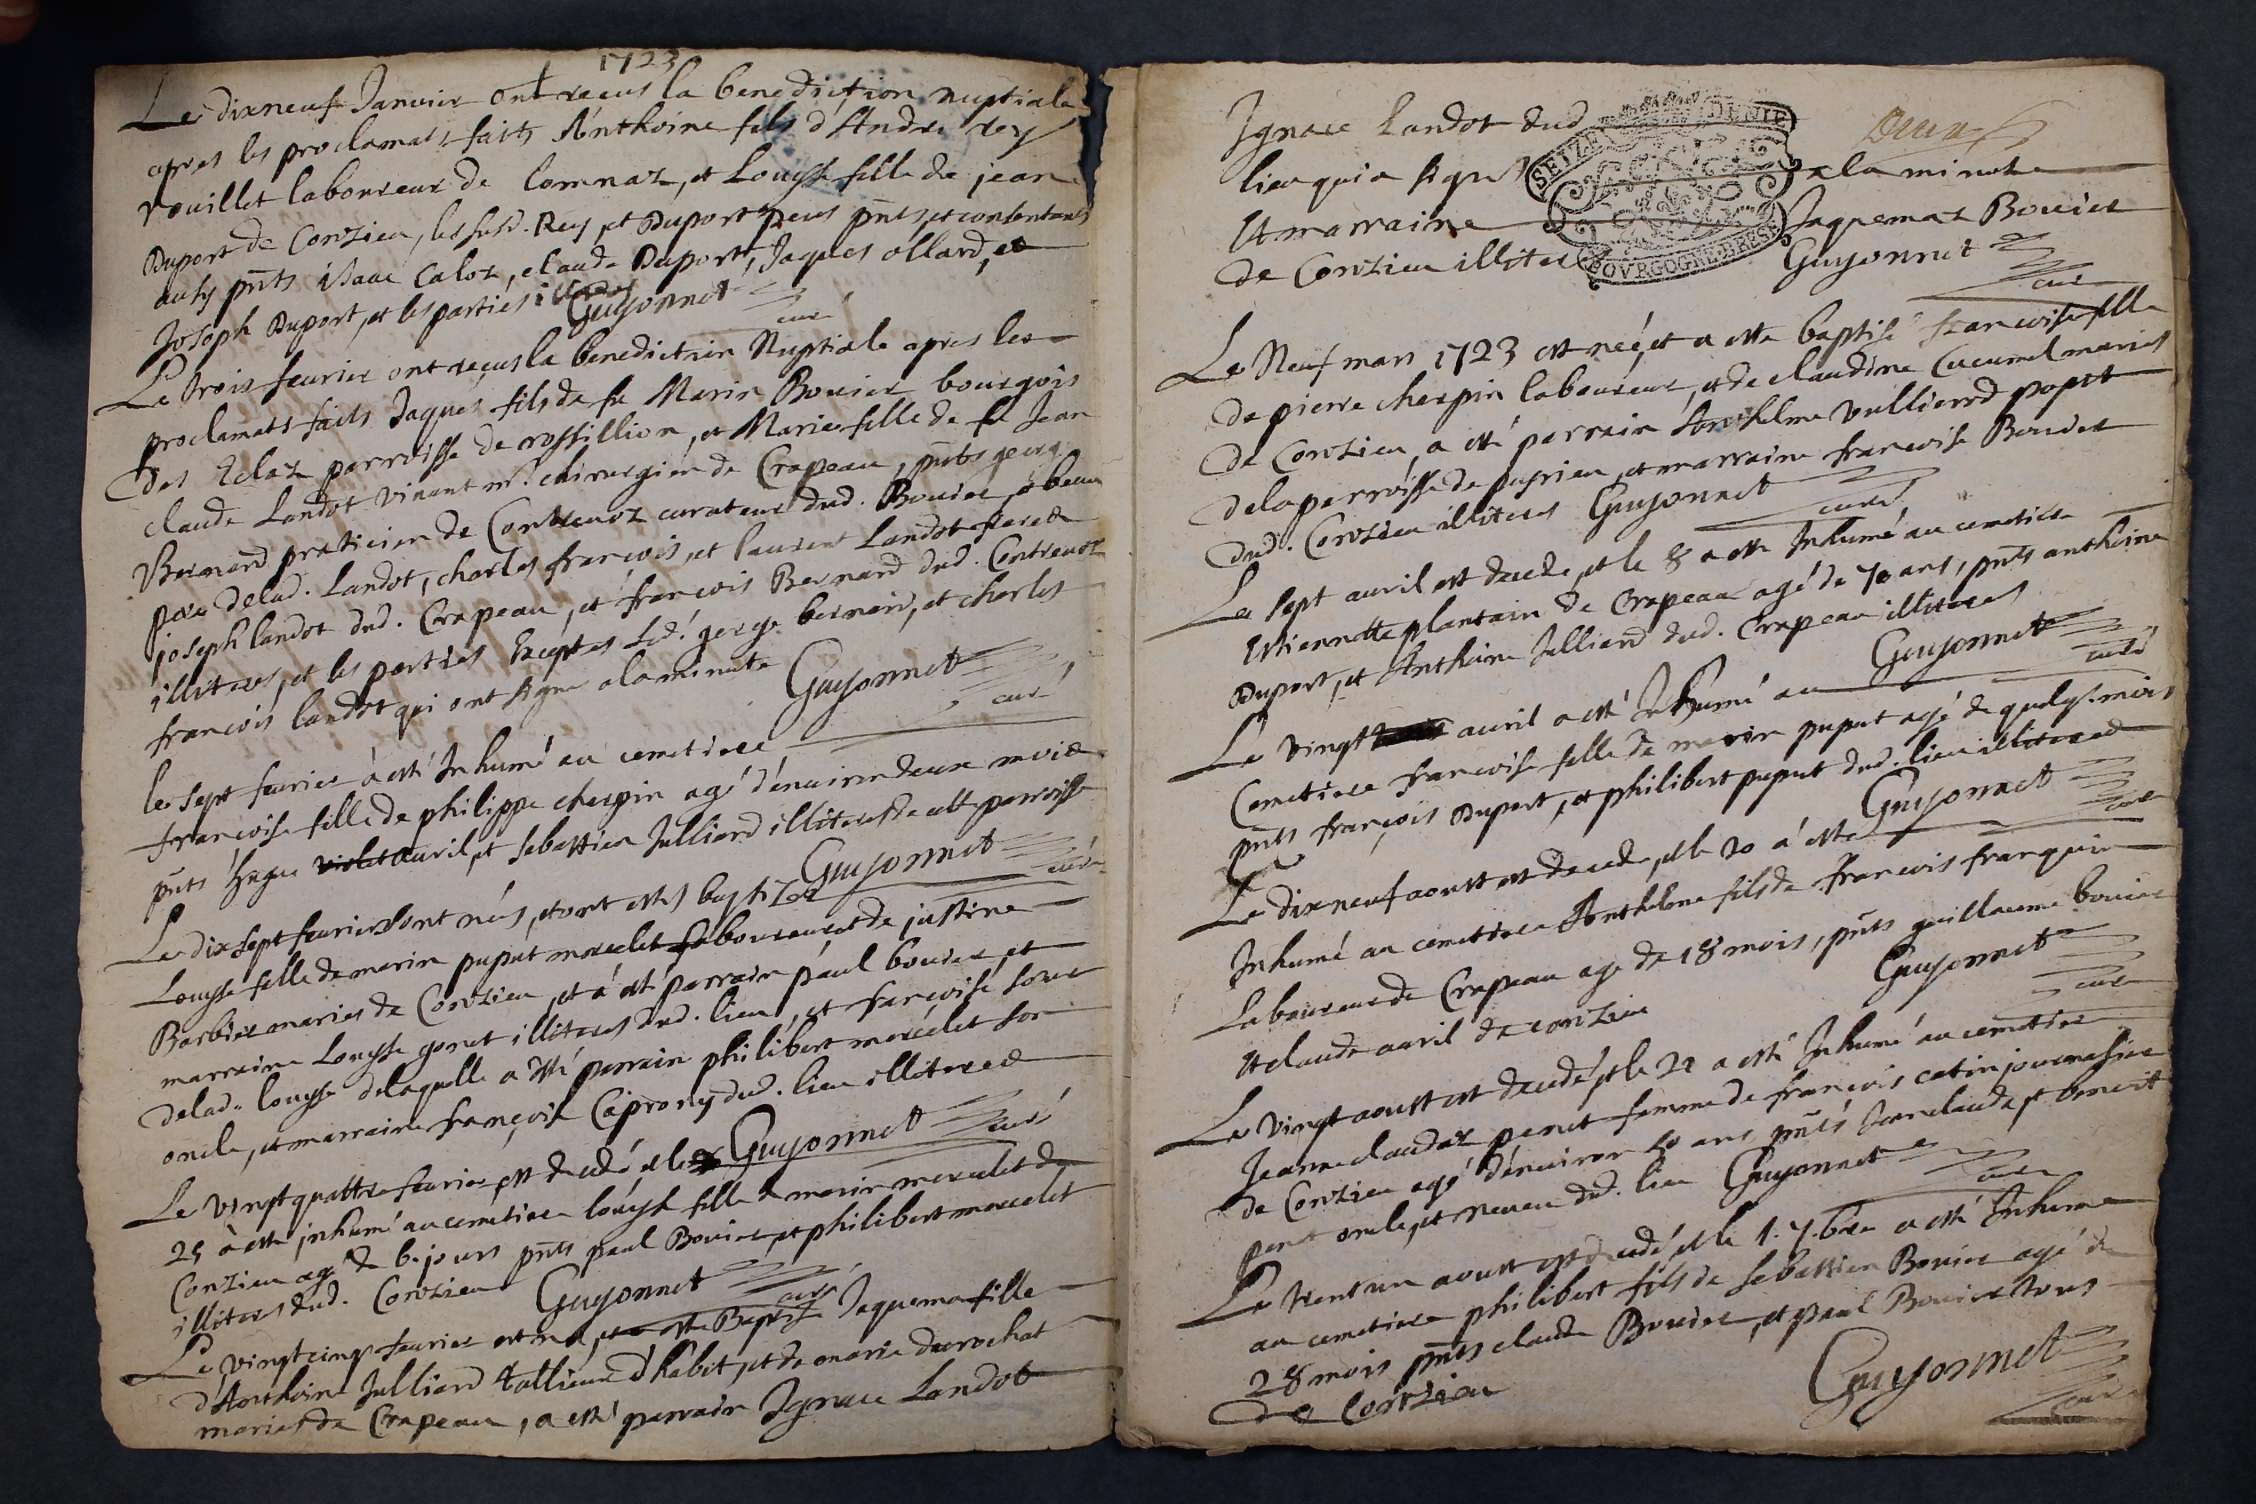 1723
Le dixneuf Janvier ont recus la benediction nuptiale
apres les proclamats faits Anthoine fils d'Andre rey
rouillet laboureur de Comnaz, et Louyse fille de jean
Duport de Conzieu, les susd. Rey, et Duport peres pnts, et consentants
aussy pnts isaac Caloz, claude Duport, Jaques ollard, et
Joseph Duport, et les parties illiteres
Guyonnet curé
Le trois feurier ont reçus la benediction Nuptiale apres les
proclamats faits Jaques fils de fe Marin Bouier bourgois
des Eclaz parroisse de rossillion, et Marie fille de fe Jean
claude Landot viuant mr. chirurgien de Crapeau, pnts george
Bernard praticien de Contreuoz curateur dud. Bouier, o beau
pere delad. Landot, charles françois, et laurent Landot freres
joseph landot dud. Crapeau, et françois Bernard dud. Contreuoz
illiteres, et les parties Exceptes led. george bernard, et charles
françois landot qui ont signe a la minute Guyonnet curé
le sept feurier à esté Inhumé au cemetiere
françoise fille de philippe cherpin agé d'enuiron deux mois
pnts hugue violet auril, et sebastien Julliard illiteres de cette parroisse
Guyonnet curé
Le dix sept feurier sont nés, et ont estés baptizés
Louyse fille de marin puput marcelet laboureur et de justine
Barbier maries de Conzieu, et à esté parrain paul bouier, et
marraine Louyse gonet illiteres dud. lieu, et françoise soeur
delad. louyse delaquelle a esté parrain philibert marcelet son
oncle, et marraine françoise Caprony dud. lieu illiteres
Guyonnet curé
Le vingt quattre feurier est decedé et le
25 à esté inhumé au cemetiere louyse fille de marin marcelet de
Conzieu agé de 6. jours pnts paul Bouier, et philibert marcelet
illiteres dud. Conzieu Guyonnet curé
Le vingt cinq feurier est né, et a esté Baptisé Jaquema fille
d'Anthoine Julliard tallieur d'habit, et de marie durochat
maries de Crapeau, a esté parrain Ignace Landot
Ignace Landot dud
lieu qui a signé a la minute
SEIZE DENIE
BOVRGOGNE BRESSE
Et marraine Jaquemaz Bouier
de Conzieu illitere Guyonnet curé
Le Neuf mars 1723 est née, et a esté baptisé françoise fille
de pierre cherpin laboureur, et de claudine Cucumel maries
de Conzieu, a esté parrain Anthelme vulliermd popet
dela parroisse de pugieu, et marraine françoise Bouier
dud. Conzieu illiteres Guyonnet curé
Le sept auril est decede, et le 8 a esté Inhumé au cemetiere
Estiennette plantain de Crapeau agé de 70 ans, pnts anthoine
Duport, et Anthoine Julliard dud. Crapeau illiteres
Guyonnet curé
Le vingt auril a esté Inhumé au
Cemetiere françoise fille de marin puput agé de quelqs. mois
pnts françois Duport, et philibert puput dud. lieu illiteres
Guyonnet curé
Le dix neuf aoust est decede, et le 20 à esté
Inhumé au cemetiere Anthelme fils de françois franquin
laboureur de Crapeau age de 18 mois, pnts guillaume bouier
et claude auril de conzieu
Guyonnet curé
Le vingt aoust est decedé, et le 21 a esté Inhumé au cemetiere
Jeanne claudaz penet femme de françois catin journalier
de Conzieu agé d'enuiron 50 ans pnts Jean claude, et benoit
penet oncle, et neueu dud. lieu Guyonnet curé
Le trent un aoust est decedé, et le 1. 7.bre a esté Inhumé
au cemetiere philibert fils de sebastien Bouier agé de
28 mois pnts claude Bouier, et paul Bouier tous
de Conzieu
Guyonnet curé